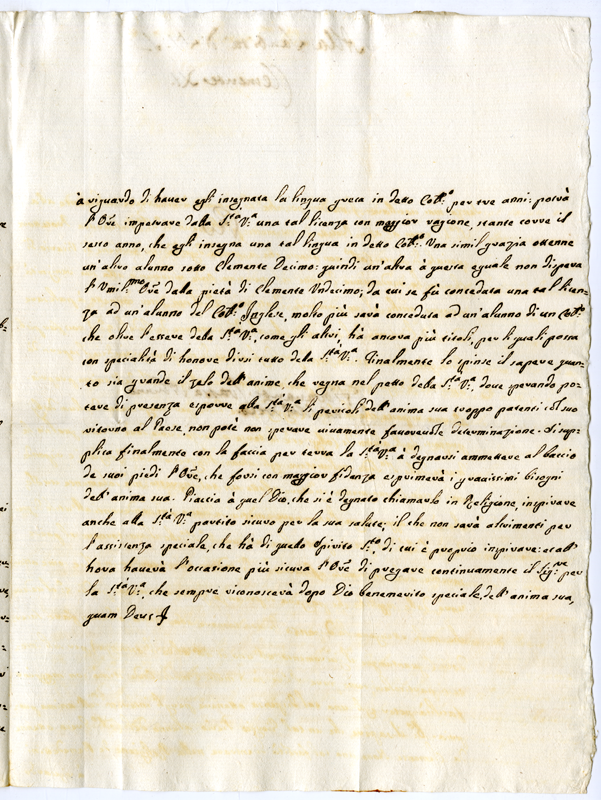 à riguardo di haver egli insegnata la lingua greca in detto Coll.º per tre anni: potrà
l'Ore impetrare dalla S.tà V.a una tal licenza con maggior ragione, stante corre il
sesto anno, che egli insegna una tal lingua in detto Coll.º Una simil grazia ottenne
un'altro alunno sotto Clemente Decimo: quindi un'altra à questa eguale non dispera
l'Umil.mo Ore dalla pietà di Clemente Undecimo; da cui se fù conceduta una tal licen
za ad un'alunno del Coll.º Inglese, molto più sarà conceduta ad un'alunno di un Coll.º
che oltre l'essere della S.tà V.a, come gli altri, hà ancora più titoli, per li quali possa
con specialità di honore dirsi tutto della S.tà V.a. Finalmente lo spinse il sapere quan
to sia grande il zelo dell'anime, che regna nel petto della S.tà V.a, dove sperando po
tere di presenza esporre alla S.tà V.a li pericoli dell'anima sua troppo patenti col suo
ritorno al Paese, non potè non sperare vivamente favorevole determinazione. Si sup
plica finalmente con la faccia per terra la S.tà V.a à degnarsi ammettere al baccio
de suoi piedi l'Ore, che forsi con maggior fidanza esprimerà i gravissimi bisogni
dell'anima sua. Piaccia à quel Dio, che si è degnato chiamarlo in Religione, inspirare
anche alla S.tà V.a partito sicuro per la sua salute; il che non sarà altrimenti per
l'assistenza speciale, che hà di quello Spirito S.to, di cui è proprio inspirare: et all'
hora haverà l'occasione più sicura l'Ore di pregare continuamente il Sig.re per
la S.tà V.a, che sempre riconoscerà dopo Dio benemerito speciale dell'anima sua,
quam Deus